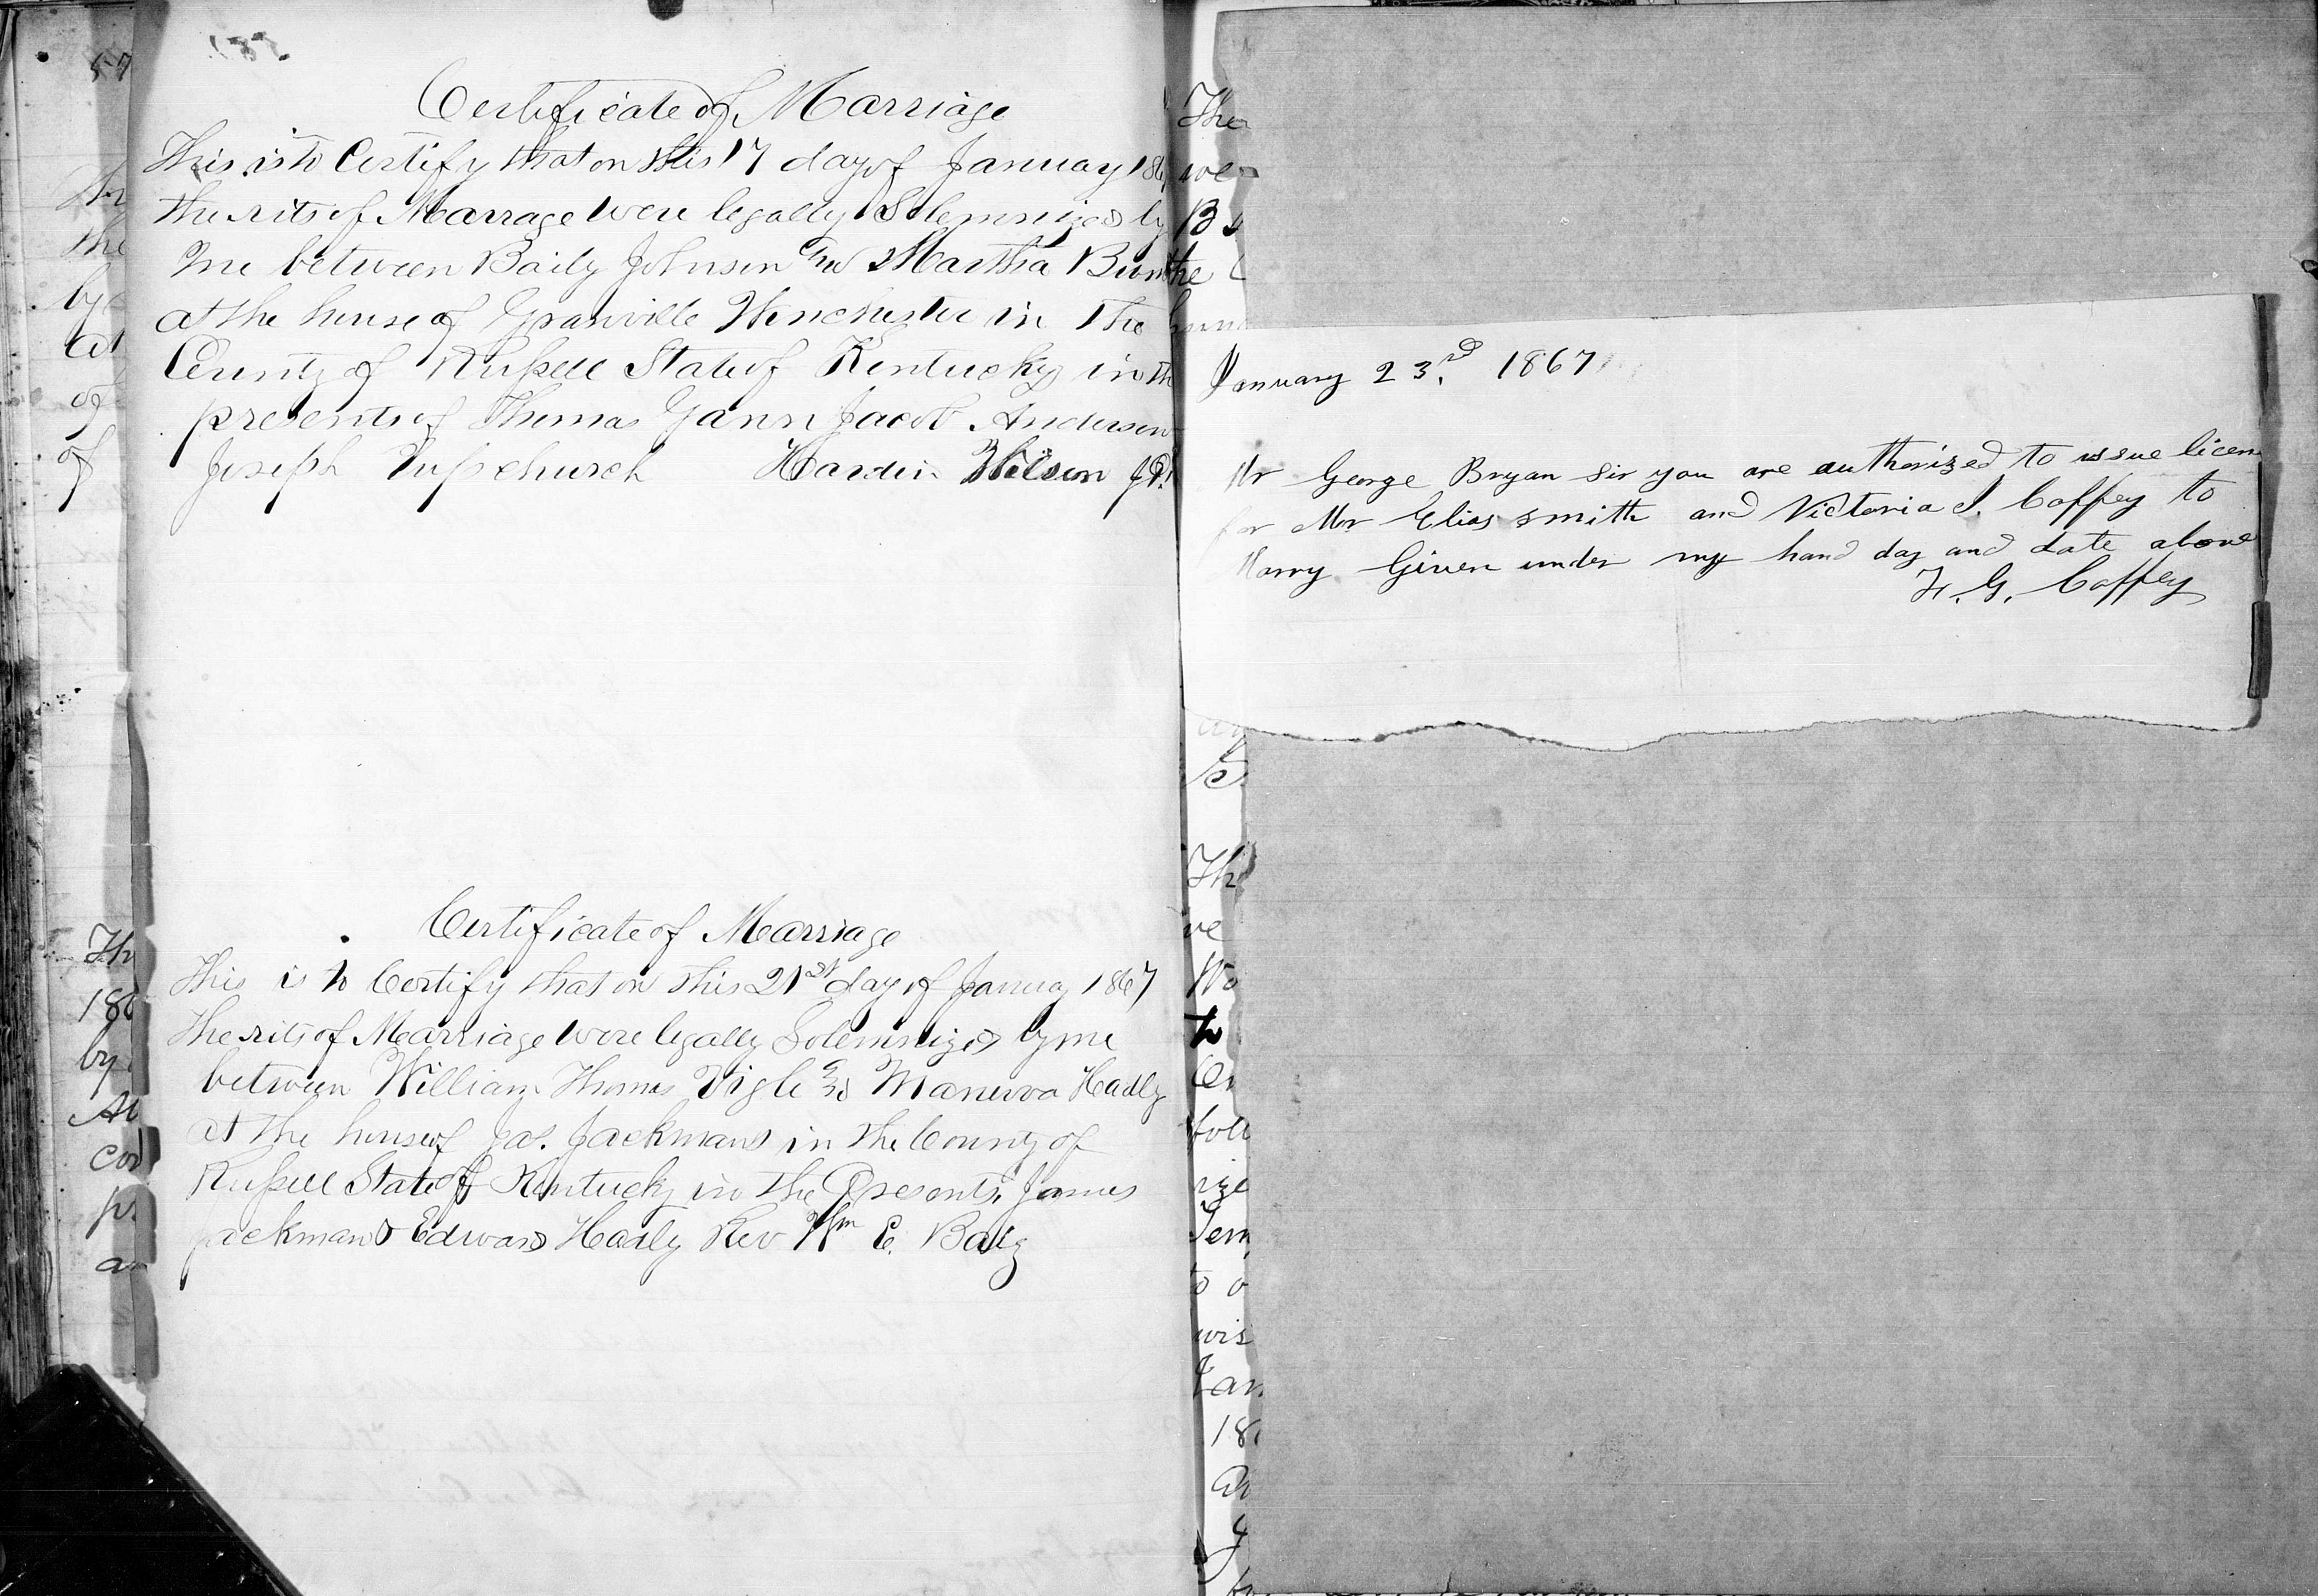 57
Certificate of Marriage
This is to Certify that on this 17 day of January 186
the rits of Marrage were legally Solemnized by
me between Baily Johnson and Martha
at the house of Granville Winchester in the
County of Russell State of Kentucky in th
presents of Thomas Gann Jacob Anderson
Joseph Upchurch Hardin Wilson J.P.
Certificate of Marriage
This is to Certify that on this 21st day of January 1867
The rits of Marriage were legally Solemnized by me
between William Thomas and Manerva Hadly
at the house of Jas. Jackmans in the County of
Russell State of Kentucky in the Presents James
Jackman & Edward Hadly Rev Wm E.
January 23rd 1867
Mr George Bryan Sir you are authorised to issue licen
for Mr Elias Smith and Victoria J. Coffey to
Marry Given under my hand day and date above
F. G. Coffey